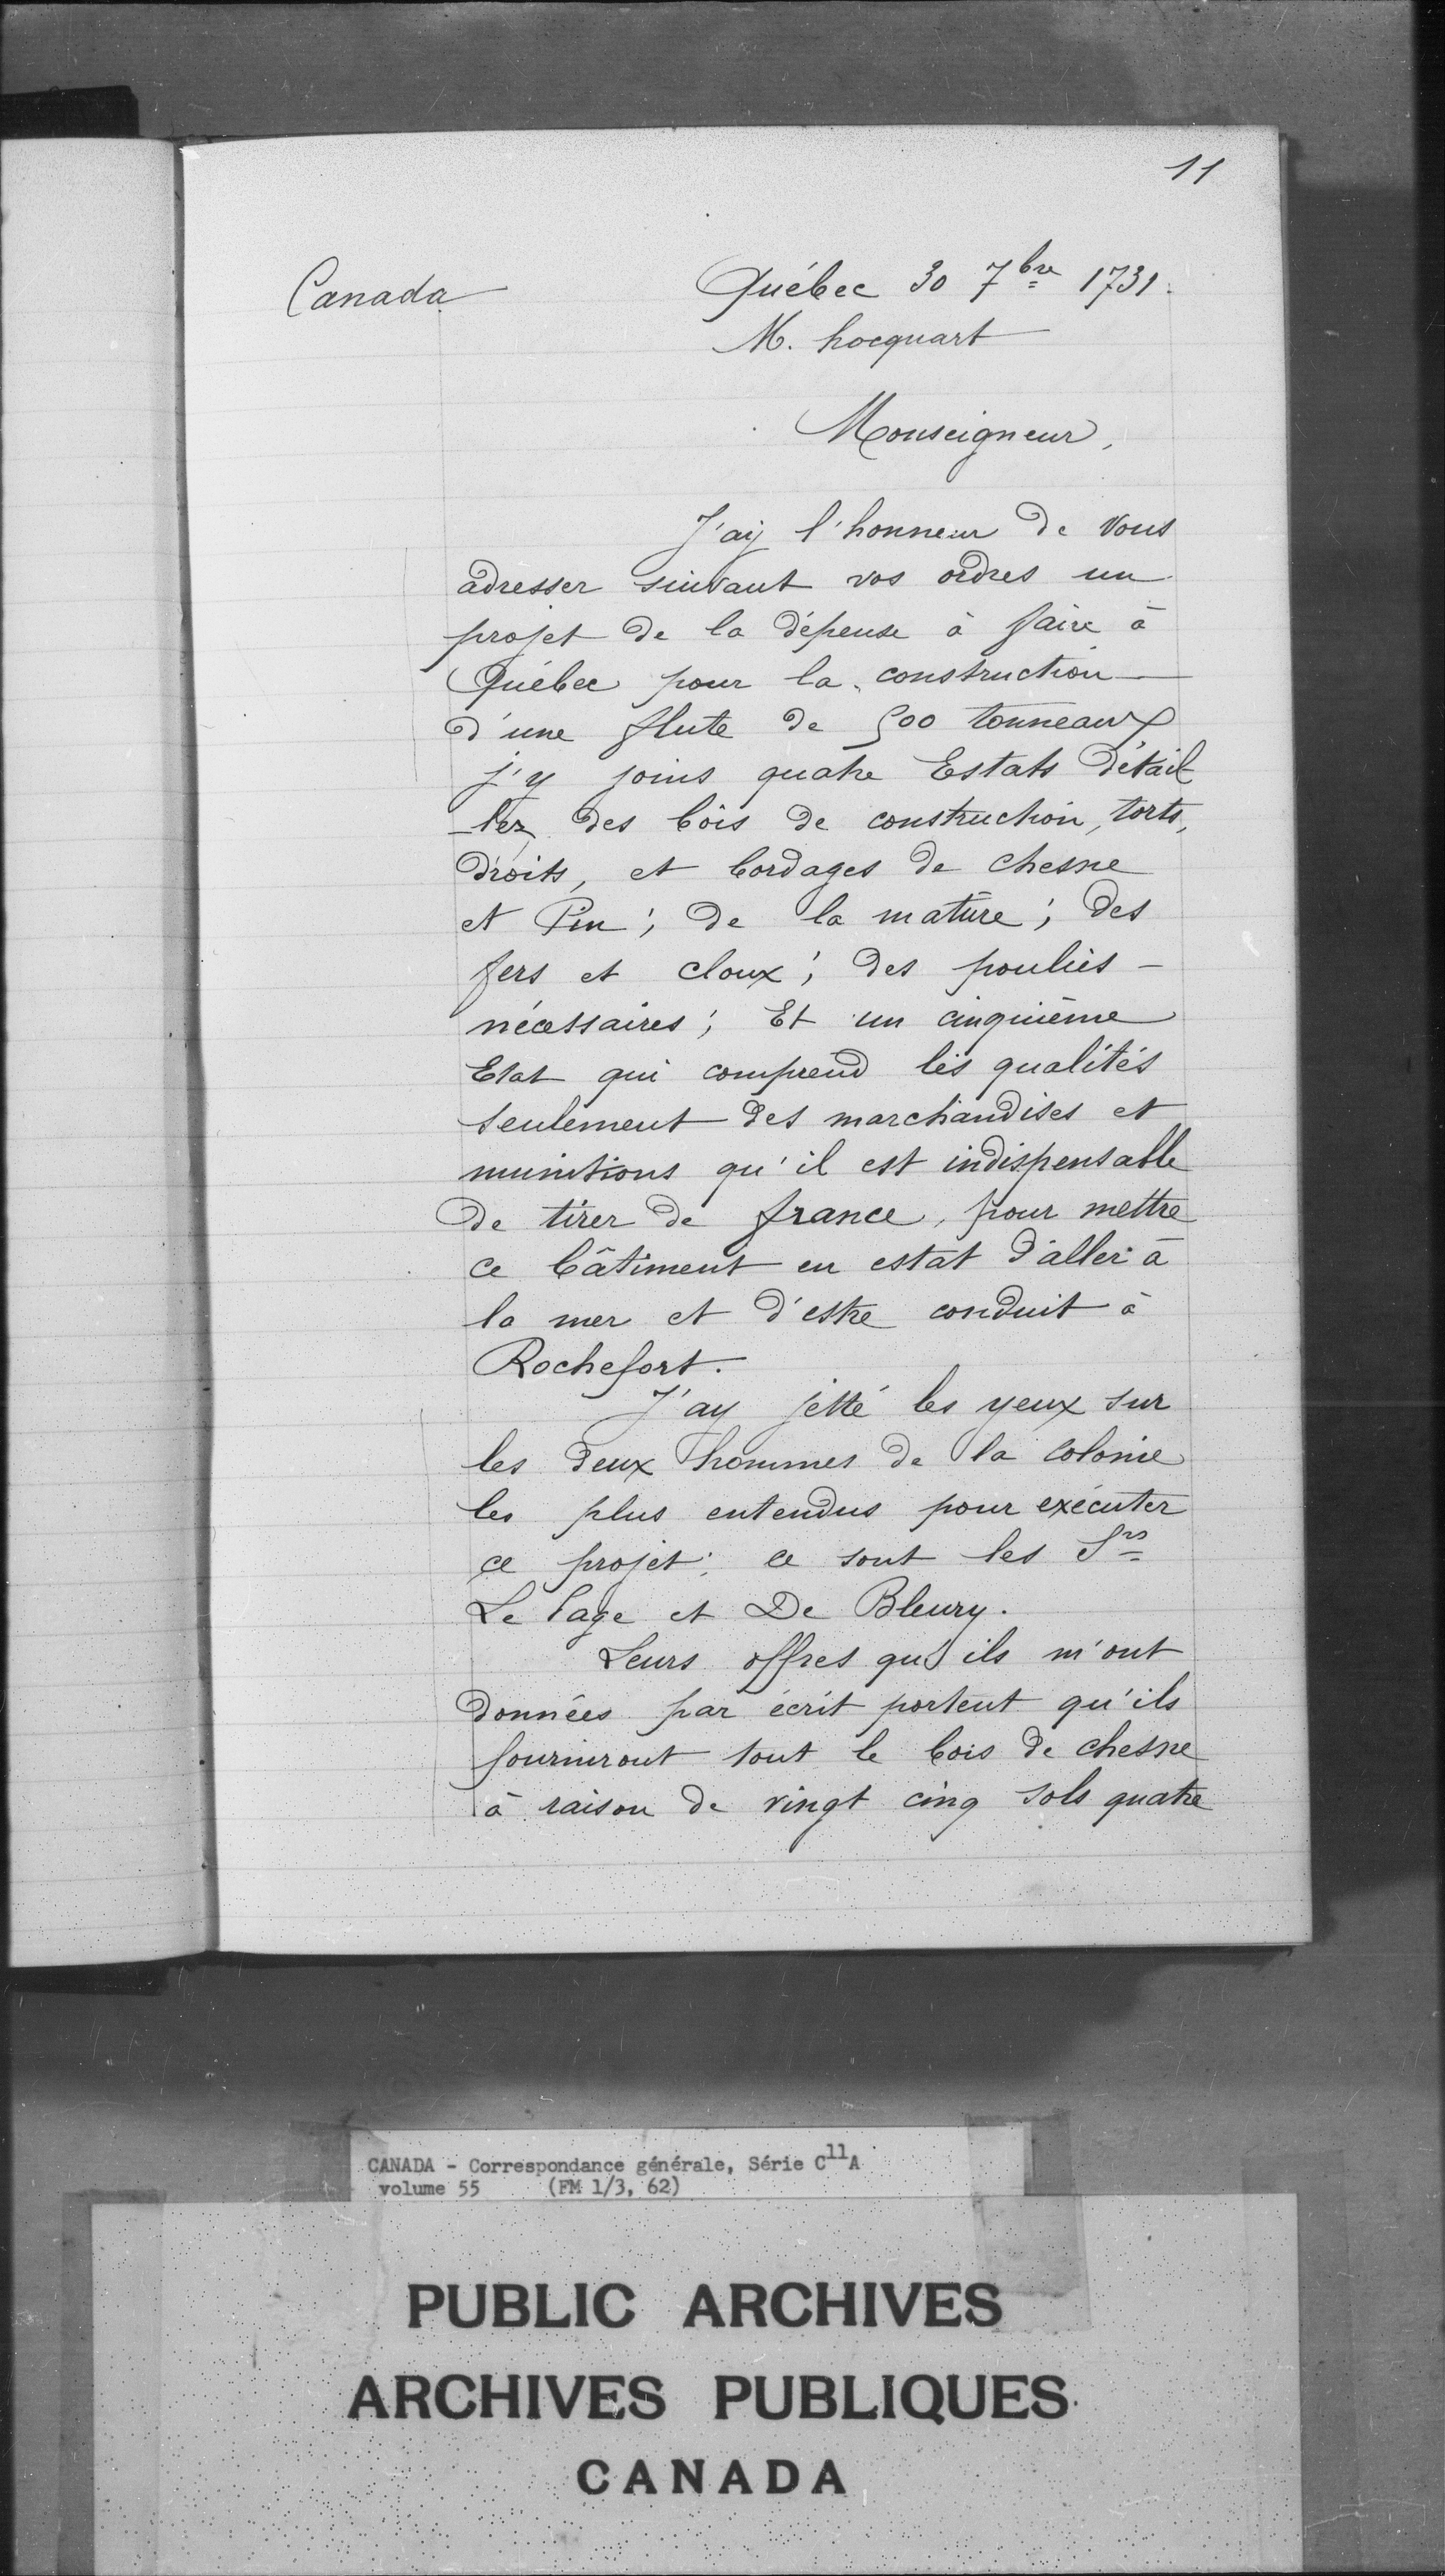 11
Canada
Québec 30 7bre 1731.
M. hocquart
Monseigneur,
J'aÿ l'honneur de Vous
adresser suivant vos ordres un
projet de la dépense à faire à
Québec pour la construction
d'une flute de 500 tonneaux
j'y joins quatre Estats détail
-lez des bois de construction, torts,
droits, et bordages de chesne
et Pin; de la mature; des
fers et cloux; des poulies -
nécessaires; Et un cinquième
Etat qui comprend les qualités
seulement des marchandises et
munitions qu'il est indispensable
de tirer de france, pour mettre
ce bâtiment en estat d'aller à
la mer et d'estre conduit à
Rochefort.
J'ay jetté les yeux sur
les deux hommes de la colonie
les plus entendus pour exécuter
ce projet; ce sont les Srs
Le Page et De Bleury.
Leurs offres qu'ils m'ont
données par écrit portent qu'ils
fourniront tout le bois de chesne
à raison de vingt cinq sols quatre
CANADA - Correspondance générale, Série C11A
volume 55 (FM 1/3, 62)
PUBLIC ARCHIVES
ARCHIVES PUBLIQUES
CANADA